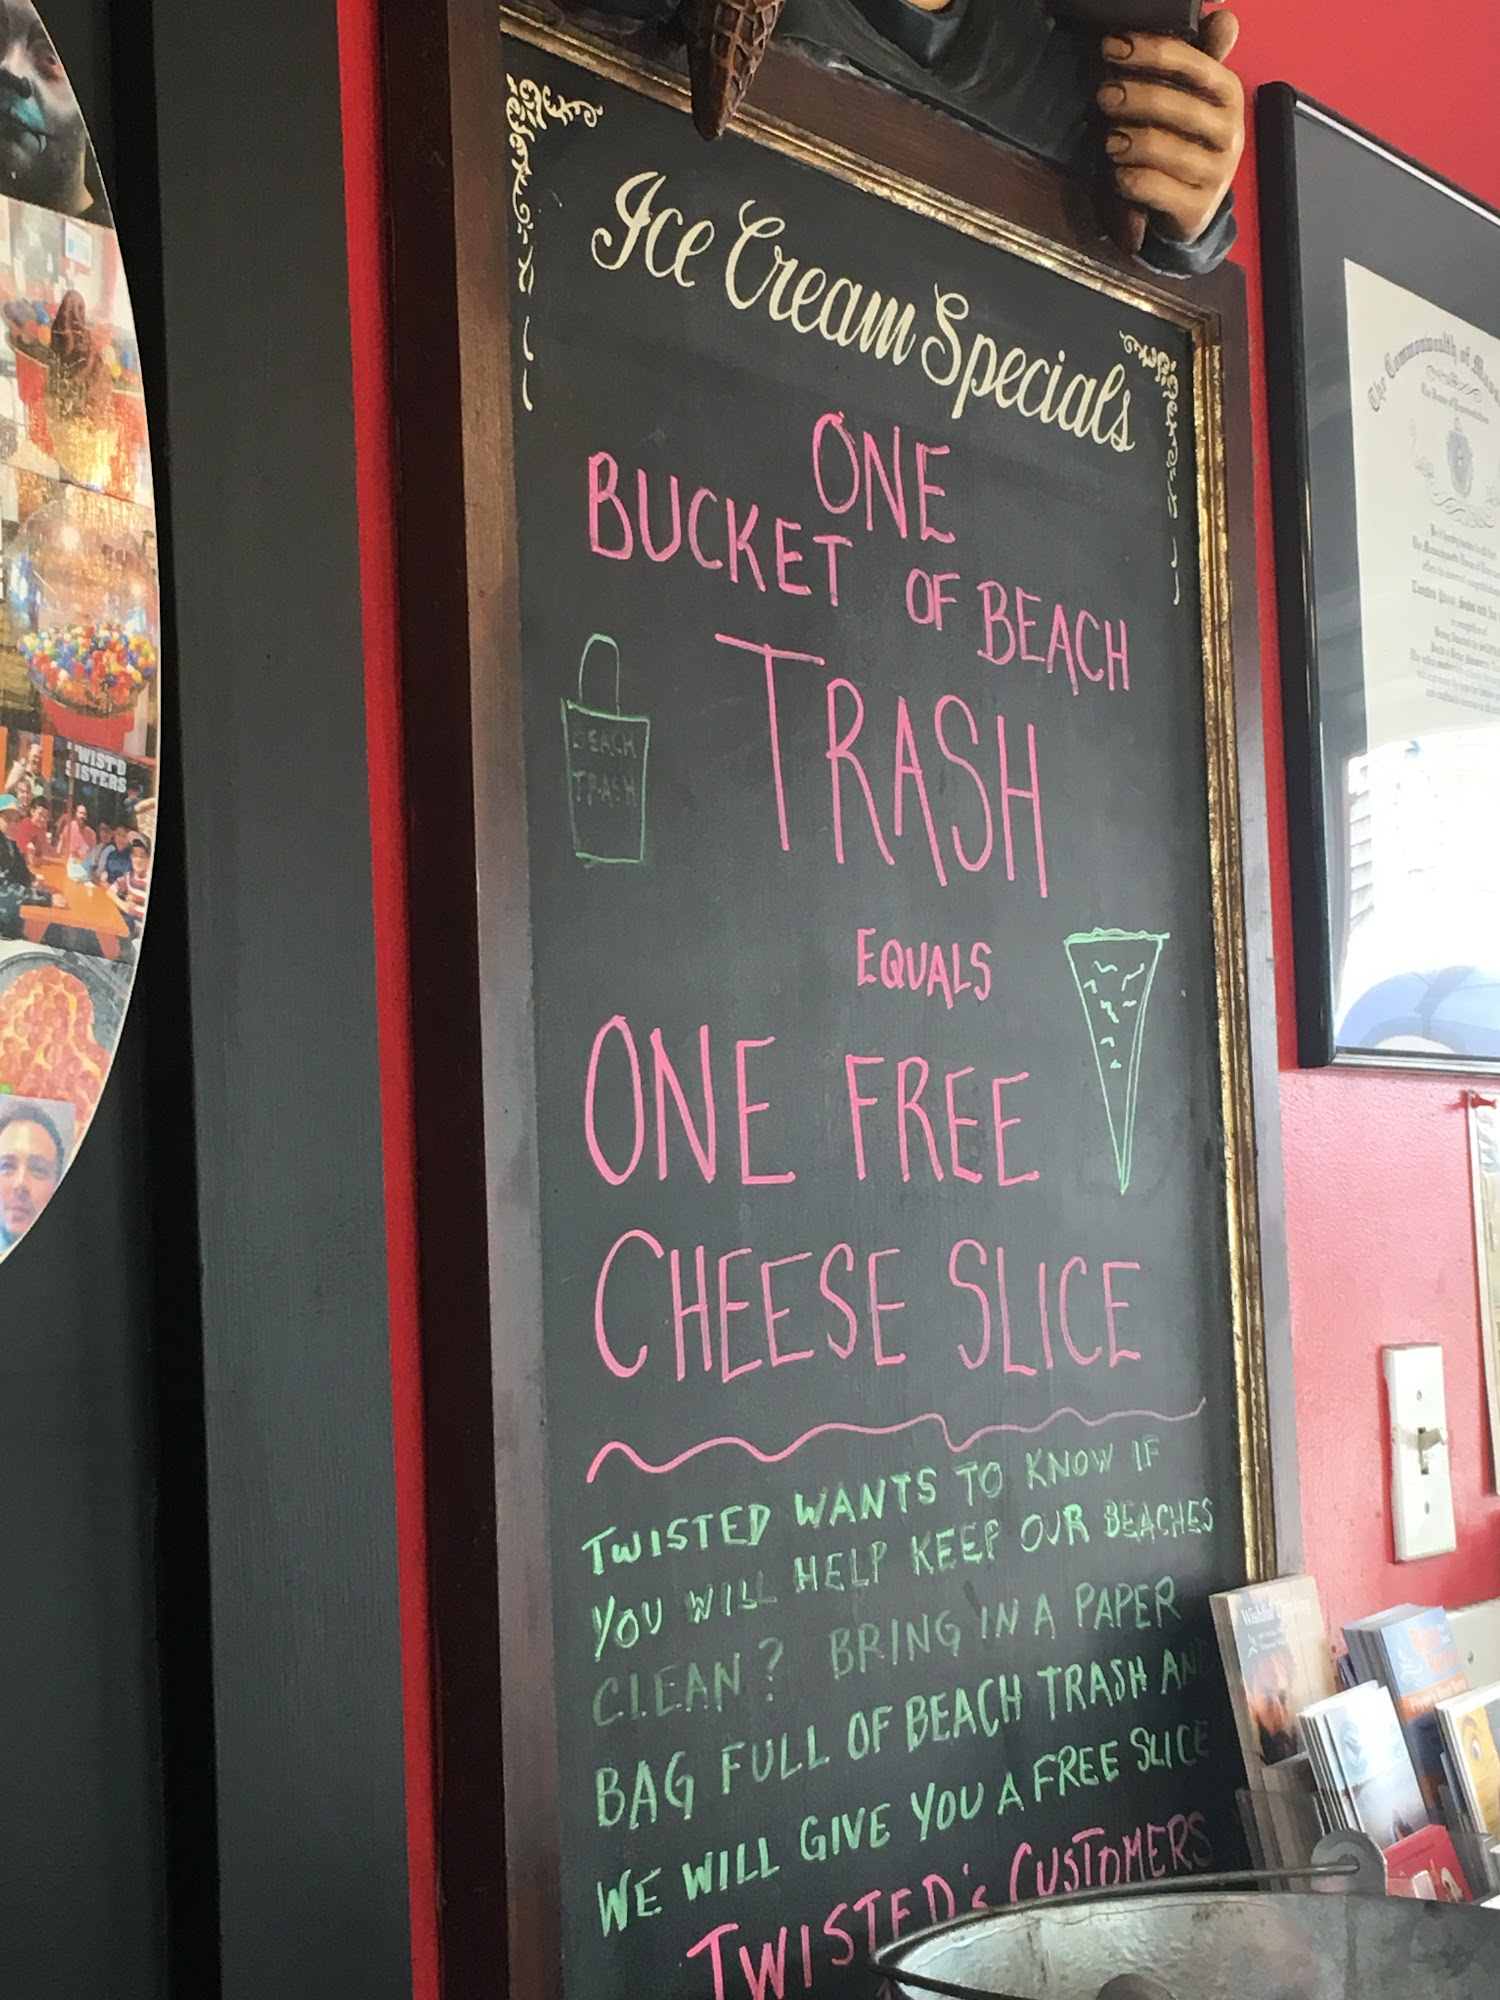 Ice Cream Specials
ONE
BUCKET OF BEACH
TRASH
BEACH
TRASH
EQUALS
ONE FREE
CHEESE SLICE
TWISTED WANTS TO KNOW IF
YOU WILL HELP KEEP OUR BEACHES
CLEAN? BRING IN A PAPER
BAG FULL OF BEACH TRASH AND
WE WILL GIVE YOU A FREE SLICE
TWISTED'S CUSTOMERS
TWIST'D
SISTERS
The Commonwealth of
The House of Representatives